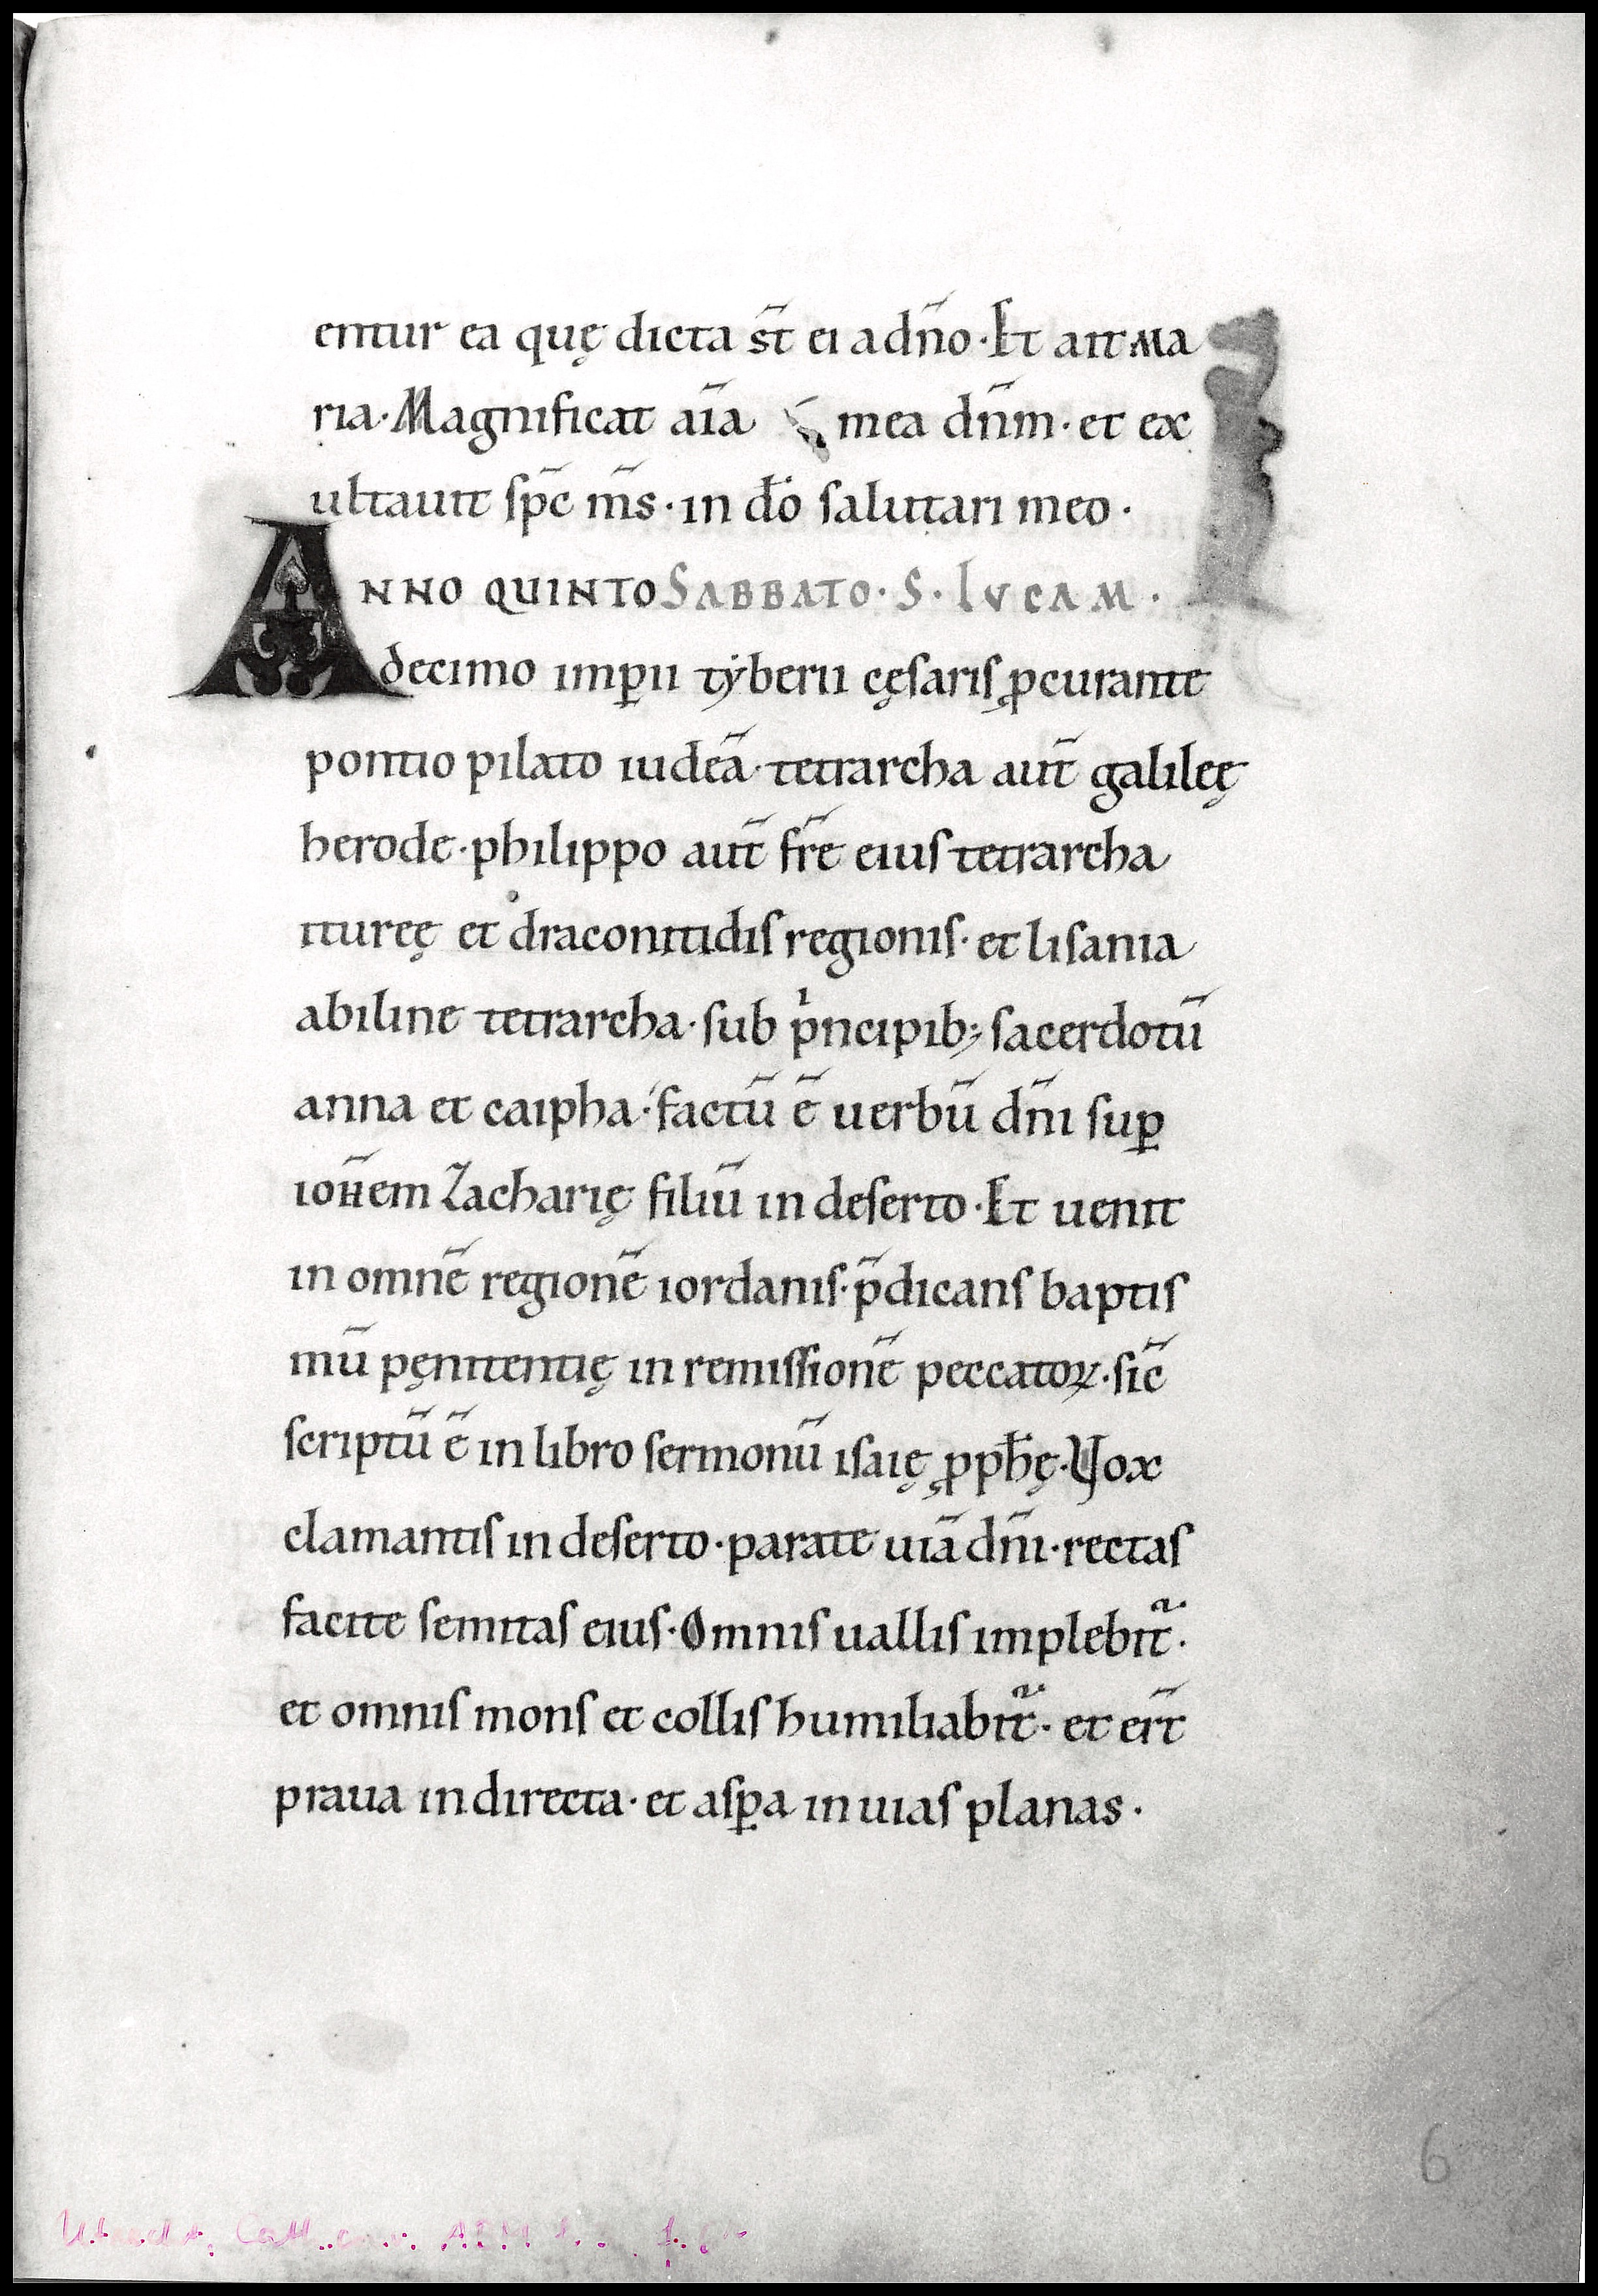 entur ea quę dicta st̄ ei a dn̄o · Et ait Ma
ria · Magnificat aīa mea dn̄m · et ex
ultauit sp̄c m̄s · in dō salutari meo ·
ANNO QUINTO SABBATO · S · LVCAM ·
decimo imp̲ii tẏberii cęsaris ꝓcurante
pontio pilato iudeā · tetrarcha aut̄ galileę
herode · philippo aut̄ fr̄e eius tetrarcha
itureę et draconitidis regionis · et lisania
abiline tetrarcha · sub pͥncipib; sacerdotū
anna et caipha · factū ē uerbū dn̄i suꝑ
ioħem Zacharię filiū in deserto · Et uenit
in omnē regionē iordanis · p̄dicans baptis
mū pęnitentię in remissionē peccatoꝝ · sic̄
scriptū ē in libro sermonū isaię ꝓph̄ę · Vox
clamantis in deserto · parate uiā dn̄i · rectas
facite semitas eius · Omnis uallis implebit᷑ ·
et omnis mons et collis humiliabit᷑ · et erīt
praua in directa · et asꝑa in uias planas ·
6